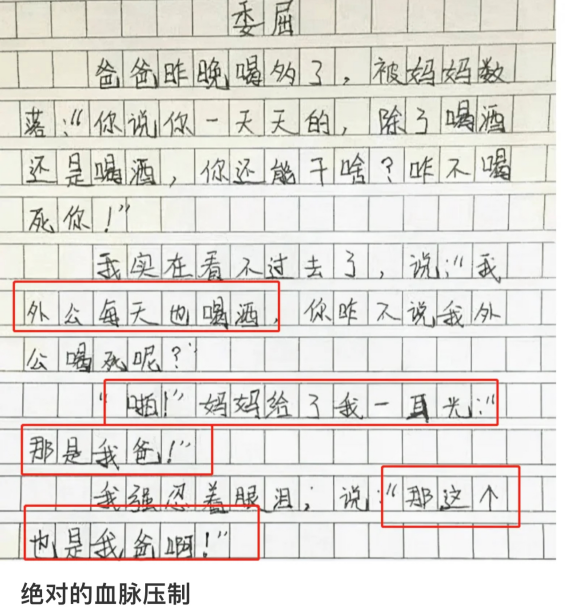 委屈
爸爸昨晚喝多了，被妈妈数
落：“你说你一天天的，除了喝酒
还是喝酒，你还能干啥？咋不喝
死你！”
我实在看不过去了，说：“我
外公每天也喝酒，你咋不说我外
公喝死呢？”
“啪！”妈妈给了我一耳光：“
那是我爸！”
我强忍着眼泪，说：“那这个
也是我爸啊！”
绝对的血脉压制